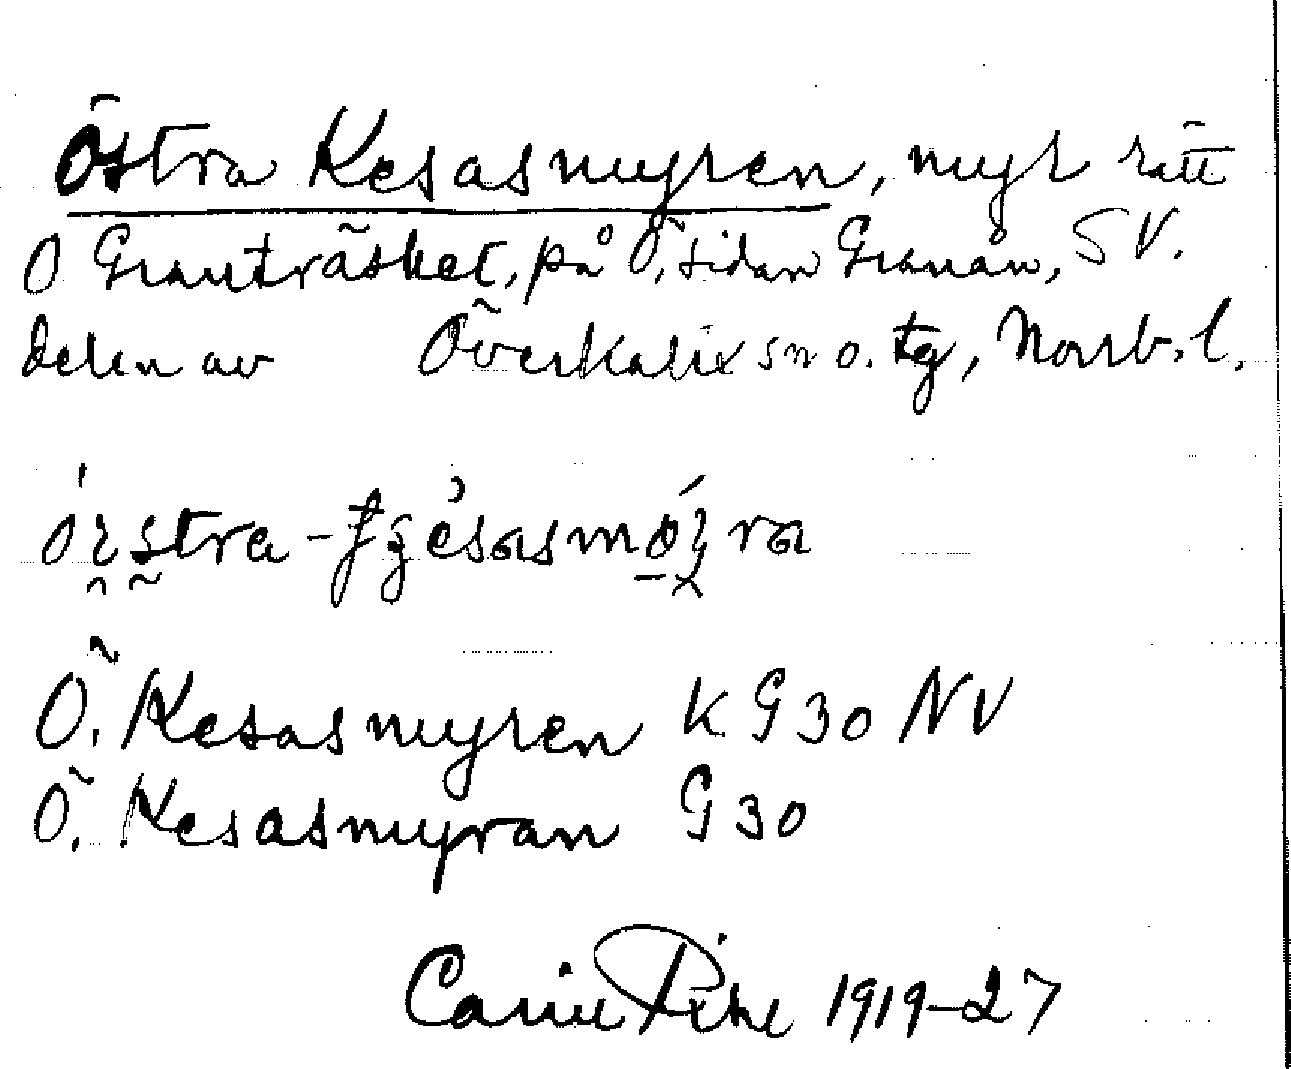 Östra Kesasmyren, myr rätt
O Granträsket, på Ö. sidan Granån, SV.
delen av Överkalix sn o. tg, Norrb. l.
Ö. Kesasmyren K G 30 NV
Ö. Kesasmyran G 30
Carin Pihl 1919-27